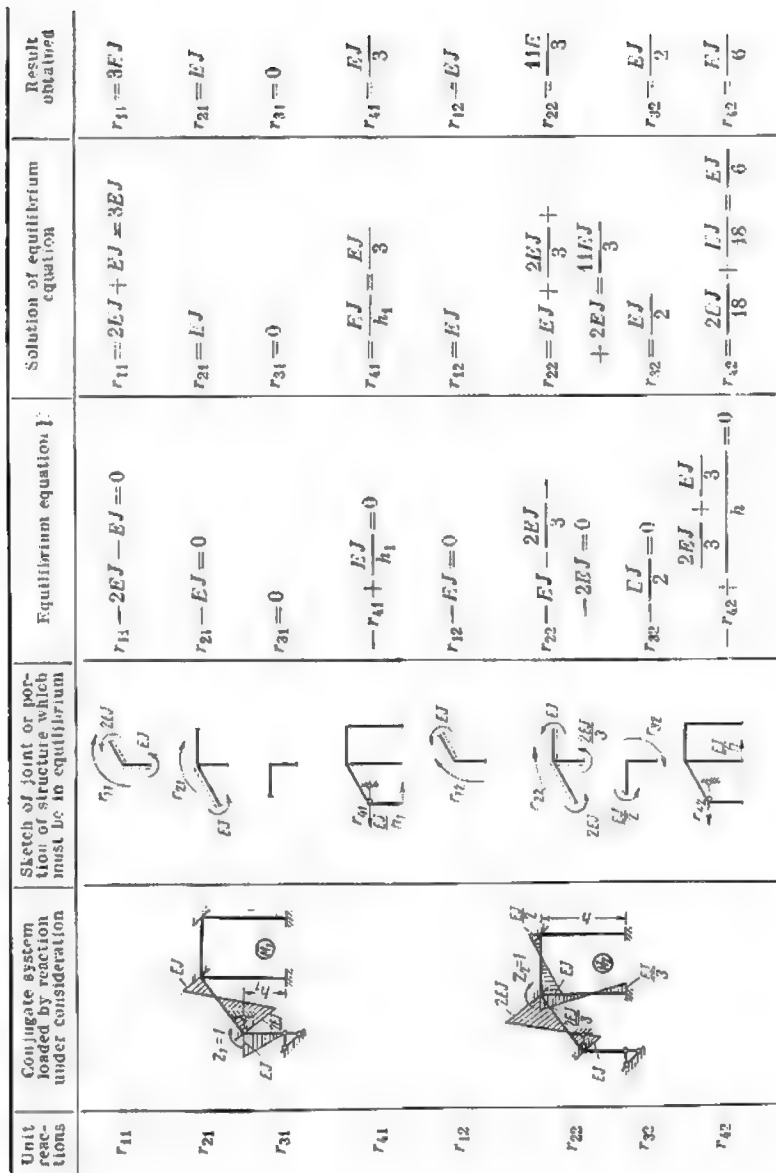 Unit reac-tions
Conjugate system loaded by reaction under consideration
Sketch of joint or por-tion of structure which must be in equilibrium
Equilibrium equation
Solution of equilibrium equation
Result obtained
r11
Z1=1
EJ
2EJ
EJ
h1
M1
r11
2EJ
EJ
r11 − 2EJ − EJ = 0
r11 = 2EJ + EJ = 3EJ
r11 = 3EJ
r21
r21
EJ
r21 − EJ = 0
r21 = EJ
r21 = EJ
r31
r31 = 0
r31 = 0
r31 = 0
r41
r41
EJ/h1
−r41 + EJ/h1 = 0
r41 = EJ/h1 = EJ/3
r41 = EJ/3
r12
r12
EJ
r12 − EJ = 0
r12 = EJ
r12 = EJ
r22
2EJ
Z2=1
EJ/2
EJ
EJ
EJ/3
h
r22
2EJ
EJ
2EJ/3
r22 − EJ − 2EJ/3 −
− 2EJ = 0
r22 = EJ + 2EJ/3 +
+ 2EJ = 11EJ/3
r22 = 11E/3
r32
EJ/2
r32
r32 − EJ/2 = 0
r32 = EJ/2
r32 = EJ/2
r42
r42
−r42 + (2EJ/3 + EJ/3)/h = 0
r42 = 2EJ/18 + EJ/18 = EJ/6
r42 = EJ/6